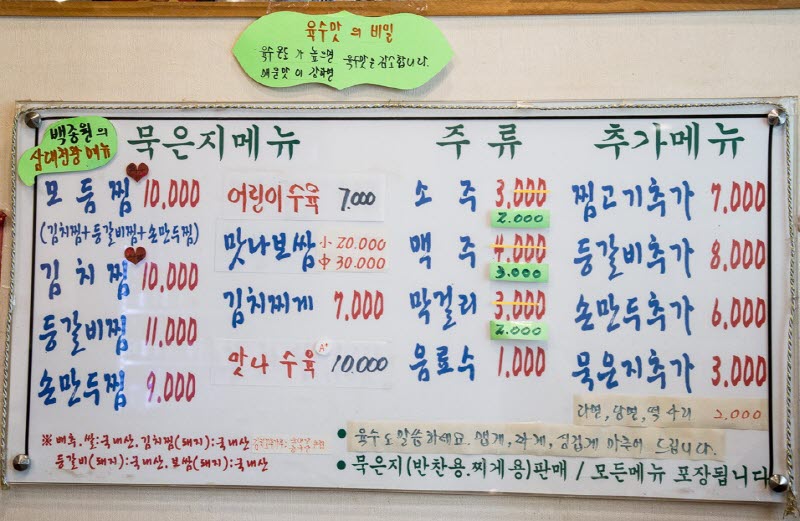 육수맛의 비밀
육수온도가 높으면 육수맛은 감소합니다.
매운맛이 강하면
백종원의
삼대천왕 메뉴
묵은지메뉴
모듬찜 10,000
(김치찜+등갈비찜+손만두찜)
김치찜 10,000
등갈비찜 11,000
손만두찜 9,000
어린이 수육 7,000
맛나보쌈 小 20.000
中 30.000
김치찌게 7,000
맛나 수육 A+ 10,000
주류
소주 3,000
2.000
맥주 4,000
3.000
막걸리 3,000
2.000
음료수 1,000
추가메뉴
찜고기추가 7,000
등갈비추가 8,000
손만두추가 6,000
묵은지추가 3,000
라면,당면,떡사리 2,000
※ 배추.쌀:국내산.김치찜(돼지):국내산
등갈비(돼지):국내산.보쌈(돼지):국내산
• 육수도 말씀하세요. 맵게, 짜게, 싱겁게 마추어 드립니다.
• 묵은지(반찬용.찌게용)판매 / 모든메뉴 포장됩니다